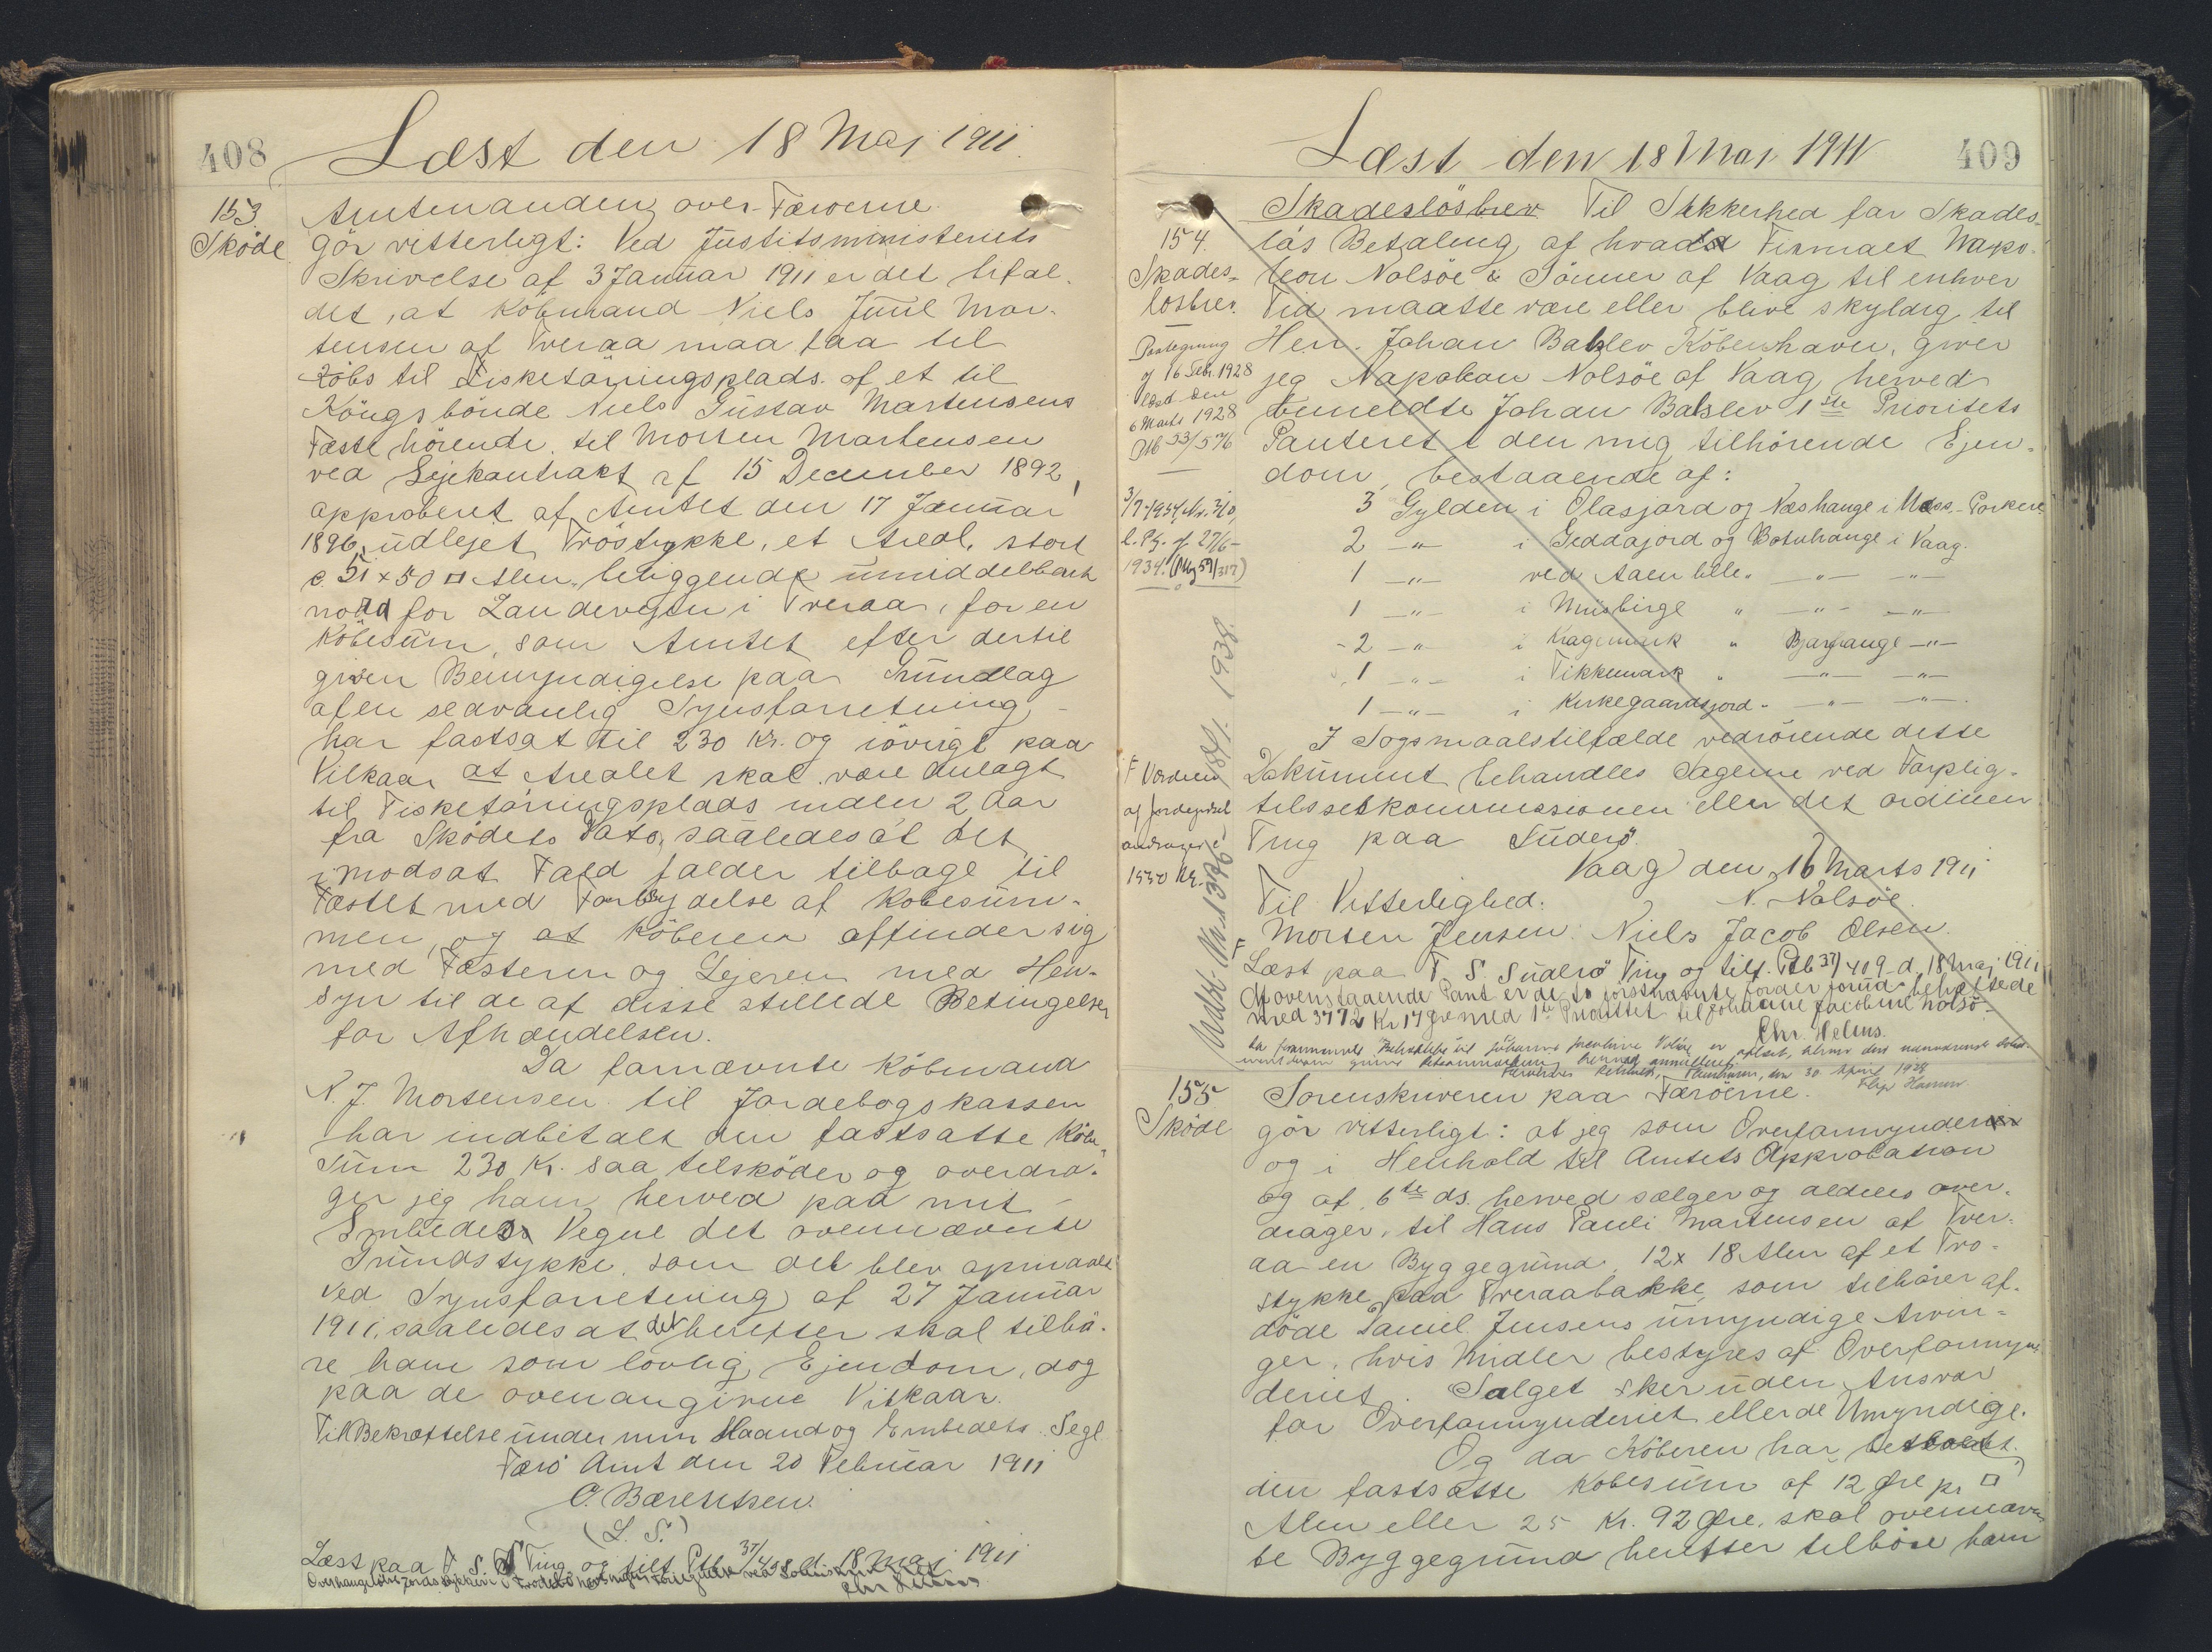 408
Læst den 18 Maj 1911.
153.
Sköde
Amtmanden over Færoerne
gör vitterligt: Ved Justitsministeriets
Skrivelse af 3 Januar 1911 er det bifal-
det, at Köbmand Niels Juul Mor-
tensen af Tveraa maa faa til
Köbs til Fisketörringsplads af et til
Kongsbönde Niels Gustav Mortensens
Fæste hörende, til Morten Mortensen
ved Lejekontrakt af 15 December 1892,
approberet af Amtet den 17 Januar
1896, udlejet Tröstykke, et Areal, stort
c. 51 x 50 □ Alen, beliggende umiddelbart
nord for Landevejen i Tveraa, for en
Köbesum, som Amtet efter dertil
given Bemyndigelse paa Grundlag
af en sedvanlig Synsforretning
har fastsat til 230 Kr. og iövrigt paa
Vilkaar at Arealet skal være anlagt
til Fisketörringsplads inden 2 Aar
fra Sködets Dato, saaledes at det
i modsat Fald falder tilbage til
Fæstet med Fortydelse af Köbesum-
men, og at Köberen affinder sig
med Fæsteren og Lejeren med Hen-
syn til de af disse stillede Betingelser
for Afhændelsen.
Da fornævnte Köbmand
N. J. Mortensen til Jordebogskassen
har indbetalt den fastsatte Köbe-
sum 230 Kr. saa tilsköder og overdra-
ger jeg ham herved paa mit
Embedes Vegne det ovennævnte
Grundstykke, som det blev opmaalt
ved Synsforretning af 27 Januar
1911, saaledes at det herefter skal tilhö-
re ham som lovlig Ejendom, dog
paa de ovenangivne Vilkaar.
Til Bekræftelse under min Haand og Embedets Segl.
Færö Amt den 20 Februar 1911
C. Bærentsen.
(L. S.)
Læst paa T. S. Ting og tilf. Ptb 37/408 d. 18 Maj 1911
Chr Helms
Læst den 18 Maj 1911
409
154.
Skades-
lösbrev.
Paategning
af 16 Febr. 1928
læst den
6 Marts 1928
Ptb 53/576
3/7-1934, Nr. 310,
l. Pg. af 27/6-
1934. (Mg 59/317)
1938.
F Værdien
af jordegodset
andrager
1550 Kr.
Skadeslösbrev Til Sikkerhed for Skades-
lös Betaling af hvad Firmaet Napo-
leon Nolsöe & Sönner af Vaag til enhver
Tid maatte være eller blive skyldig til
Herr. Johan Balslev Köbenhavn, giver
jeg Napoleon Nolsöe af Vaag herved
bemeldte Johan Balslev 1ste Prioritets
Panteret i den mig tilhörende Ejen-
dom, bestaaende af:
3 Gylden i Olasjord og Næshange i Næs,- Porkere
2 -"- i Geddajord og Botnhange i Vaag.
1 -"- ved Aaen lille " -"- -"-
1 -"- i Muisbirge " -"- -"-
2 -"- i Kragemark " Bjarghauge -"-
1 -"- i Tikkemark " -"- -"-
1 -"- i Kirkegaardsjord " -"- -"-
I Sogsmaalstilfælde vedrörende dette
Dokument behandles Sagerne ved Forplig-
telsseskommissionen eller det ordinen
Ting paa Suderö.
Vaag den 16 Marts 1911
Til Vitterlighed: N. Nolsöe.
Morten Jensen. Niels Jacob Olsen.
F Læst paa T. S. Suderö Ting og tilf. Ptb 37/409 d. 18 Maj 1911
At ovenstaaende Pant er de to forstnævnte Jorder forud behæftede
med 3772 Kr 17 Øre med 1ste Prioritet til Johanne Jacobine Nolsö.
Chr. Helms.
30 April 1928
155.
Sköde
Sorenskriveren paa Færöerne.
gör vitterligt: at jeg som Overformynder
og i Henhold til Amtets Approbation
og af 6te ds. herved sælger og aldeles over-
drager til Hans Pauli Mortensen af Tver-
aa en Byggegrund, 12 x 18 Alen af et Trö-
stykke paa Tveraabakke, som tilhörer af-
döde Daniel Jensens umyndige Arvin-
ger, hvis Midler bestyres af Overformyn-
deriet. Salget sker uden Ansvar
for Overformynderiet eller de Umyndige.
Og da Köberen har betalt
den fastsatte Köbesum af 12 Øre pr. □
Alen eller 25 Kr. 92 Øre, skal ovennævn-
te Byggegrund herefter tilhöre ham